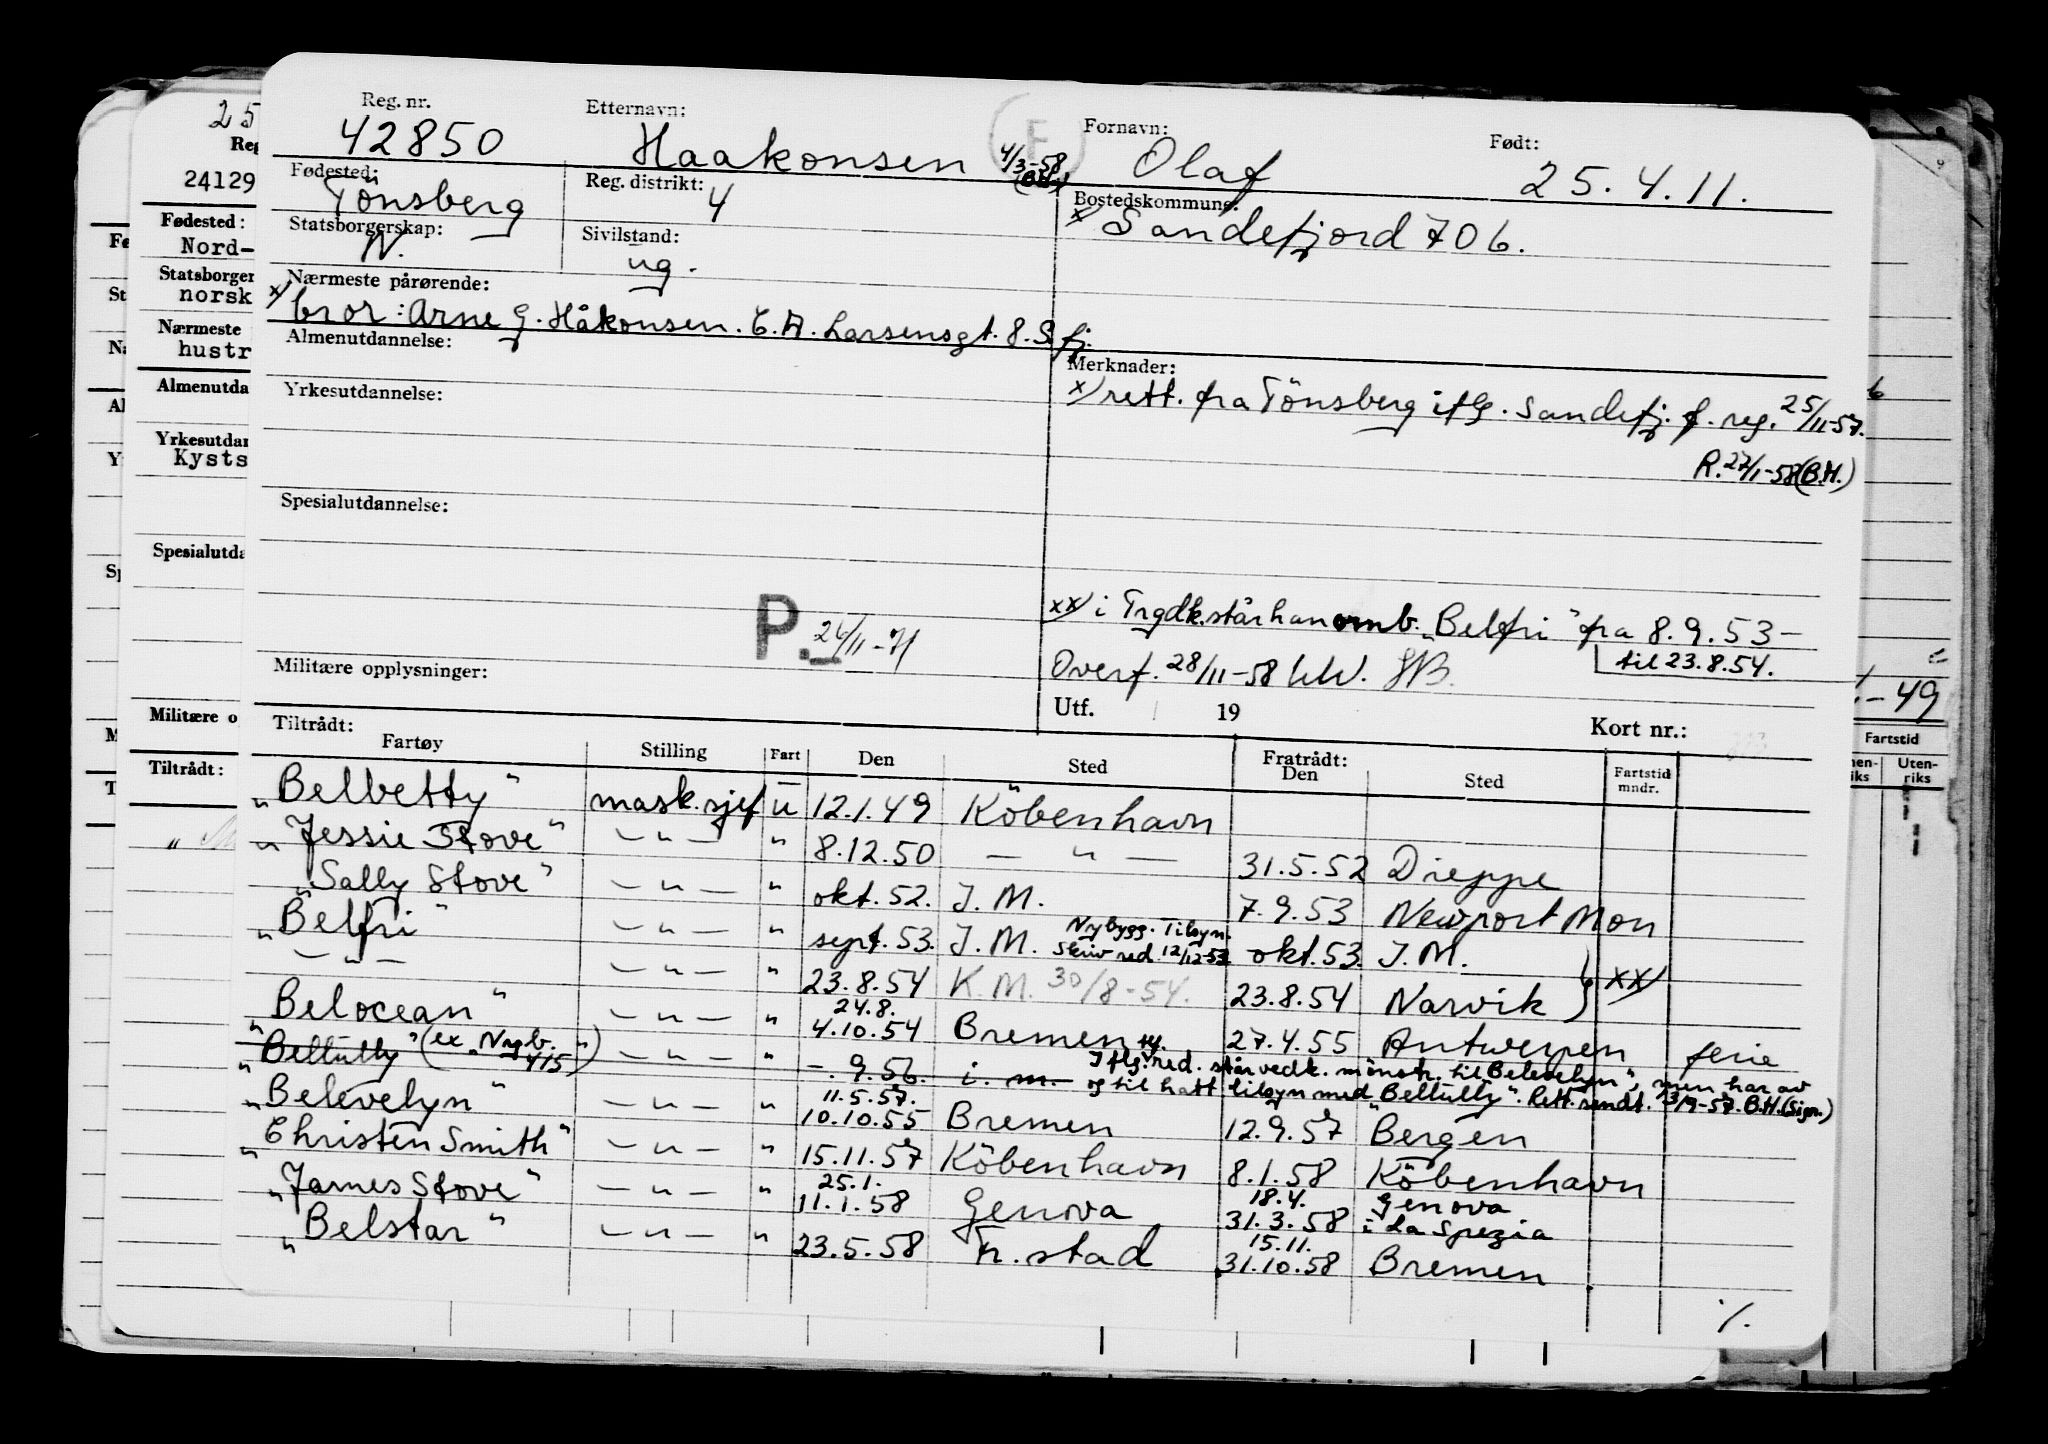 Reg. nr. Etternavn: Fornavn: Født:
42850 Haakonsen F 4/3-58 (B.H.) Olaf 25.4.11.
Fødested: Reg. distrikt: Bostedskommune:
Tönsberg 4 x/ Sandefjord 706.
Statsborgerskap: Sivilstand:
N. ug.
Nærmeste pårørende:
x/ bror: Arne G. Håkonsen. C.A. Larsensgt. 8. S.fj.
Almenutdannelse: Merknader:
x/ rett. fra Tönsberg iflg. Sandefj. f. reg. 25/11-57.
Yrkesutdannelse:
R. 27/1-58 (B.H.)
Spesialutdannelse:
xx/ i Trgdk. står han omb. "Belfri" fra 8.9.53-
til 23.8.54.
P. 26/11-71
Overf. 28/11-58
Militære opplysninger:
Utf. 19 Kort nr.:
Tiltrådt: Fratrådt:
Fartøy Stilling Fart Den Sted Den Sted Fartstid mndr.
"Belbetty" mask.sjef u 12.1.49 Köbenhavn
"Jessie Stove" — " — " 8.12.50 — " — 31.5.52 Dieppe
"Sally Stove" — " — " okt. 52. I.M. 7.9.53 Newport Mon
"Belfri" — " — " sept. 53. I.M. Nybygg. Tilsyn. Skriv red. 12/12-53 okt. 53. I.M.
— " — — " — " 23.8.54 K.M. 30/8-54. 23.8.54 Narvik } xx/
"Belocean" — " — " 24.8. 4.10.54 Bremen 27.4.55 Antwerpen ferie
"Beltully" (ex "Nyb. 415") — " — " —.9.56. i. m. Iflg. red. står vedk. mönstr. til "Belevelyn", men har av
og til hatt tilsyn med "Beltully". Rett. sendt. 13/9-57. B.H. (Sign.)
"Belevelyn" — " — " 11.5.57. 10.10.55 Bremen 12.9.57 Bergen
"Christen Smith" — " — " 15.11.57 Köbenhavn 8.1.58 Köbenhavn
"James Stove" — " — " 25.1. 11.1.58 Genova 18.4. 31.3.58 Genova i La Spezia
"Belstar" — " — " 23.5.58 Fr.stad 15.11. 31.10.58 Bremen
·/.
25
Reg
24129
Fødested:
Nord-
Statsborger
norsk
Nærmeste
hustr
Almenutda
Yrkesutdan
Kysts
Spesialutda
Militære o
Tiltrådt:
-49
Fartstid
Uten-
riks